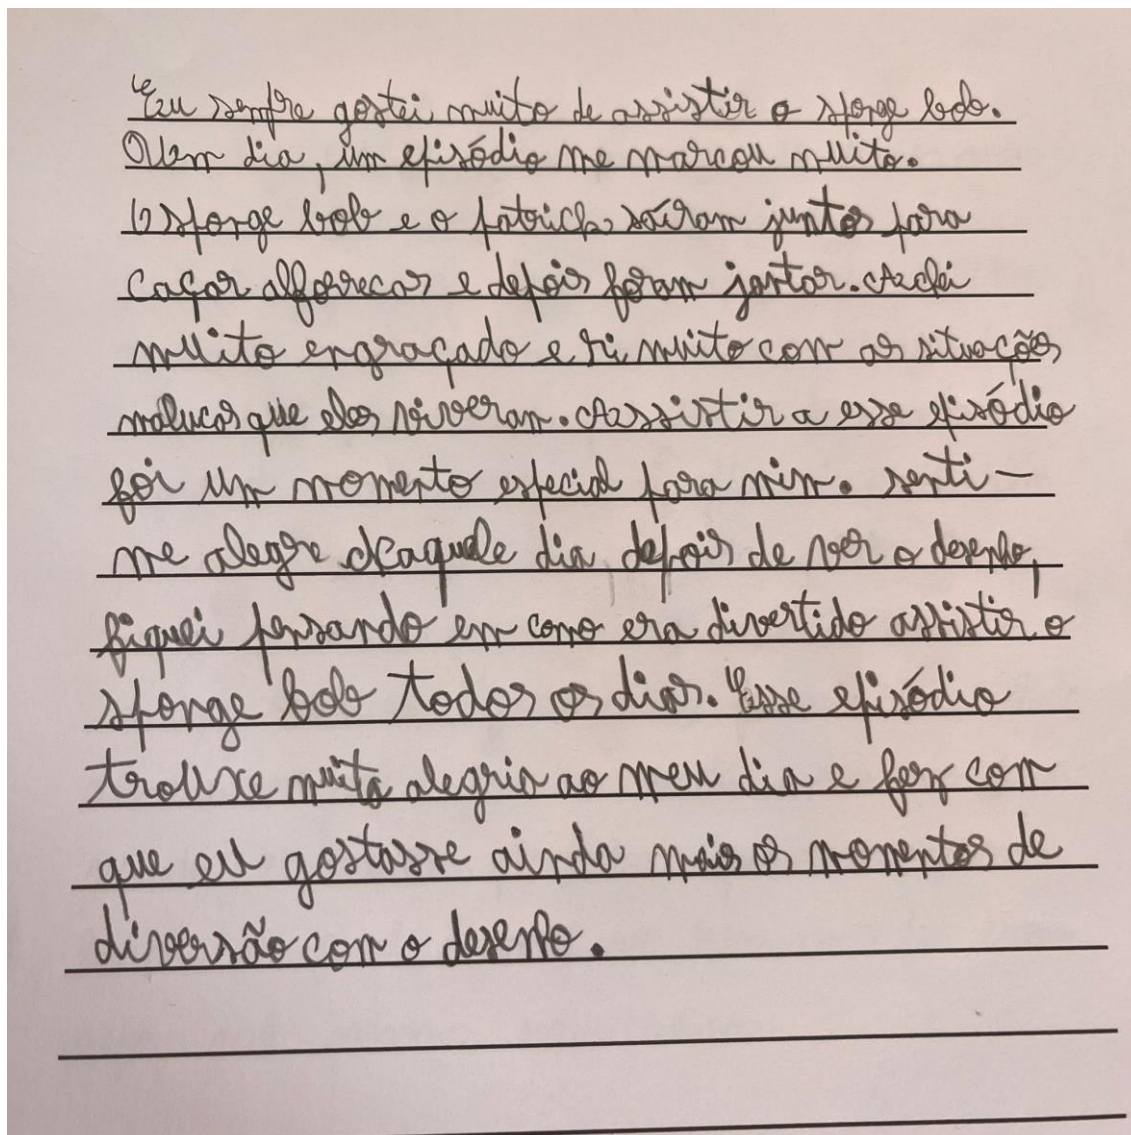 Eu sempre gostei muito de assistir o sponge bob.
um dia, um episódio me marcou muito.
O sponge bob e o patrick saíram juntos para
caçar alforrecas e depois foram jantar. Achei
muito engraçado e ri muito com as situações
malucas que eles viveram. Assistir a esse episódio
foi um momento especial para mim. senti-
me alegre daquele dia, depois de ver o desenho,
fiquei pensando em como era divertido assistir o
sponge bob todos os dias. Esse episódio
trouxe muita alegria ao meu dia e fez com
que eu gostasse ainda mais os momentos de
diversão com o desenho.